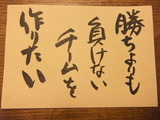 勝ちよりも
負けない
チームを
作りたい